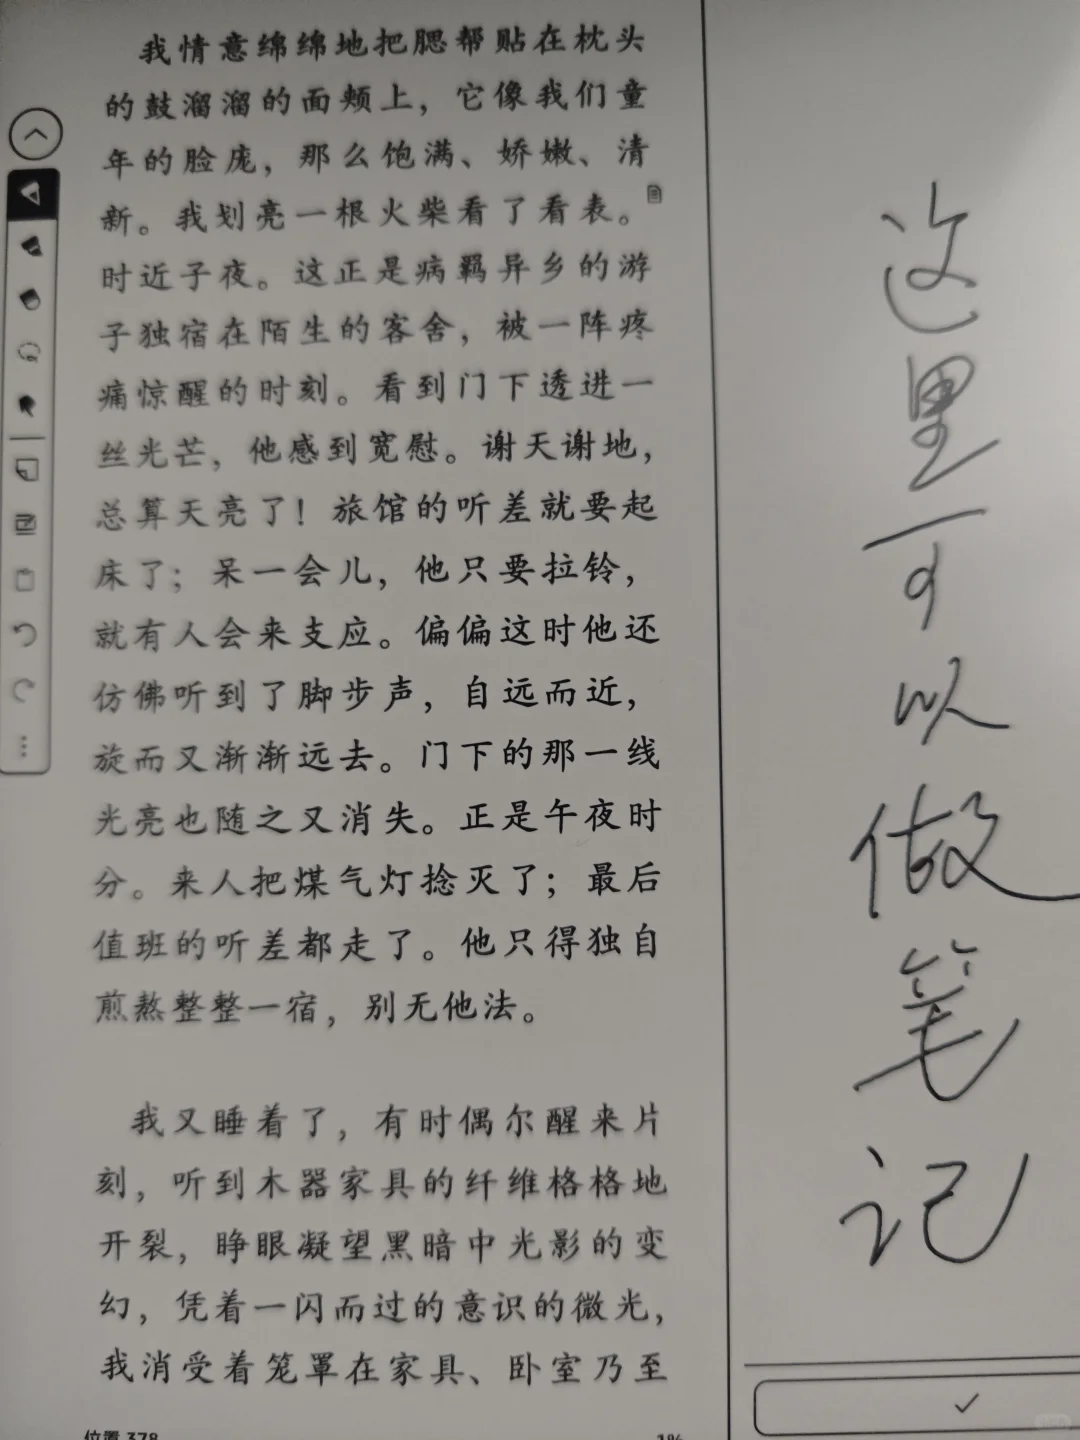 我情意绵绵地把腮帮贴在枕头
的鼓溜溜的面颊上，它像我们童
年的脸庞，那么饱满、娇嫩、清
新。我划亮一根火柴看了看表。
时近子夜。这正是病羁异乡的游
子独宿在陌生的客舍，被一阵疼
痛惊醒的时刻。看到门下透进一
丝光芒，他感到宽慰。谢天谢地，
总算天亮了！旅馆的听差就要起
床了；呆一会儿，他只要拉铃，
就有人会来支应。偏偏这时他还
仿佛听到了脚步声，自远而近，
旋而又渐渐远去。门下的那一线
光亮也随之又消失。正是午夜时
分。来人把煤气灯捻灭了；最后
值班的听差都走了。他只得独自
煎熬整整一宿，别无他法。
我又睡着了，有时偶尔醒来片
刻，听到木器家具的纤维格格地
开裂，睁眼凝望黑暗中光影的变
幻，凭着一闪而过的意识的微光，
我消受着笼罩在家具、卧室乃至
位置 378
1%
这里可以做笔记